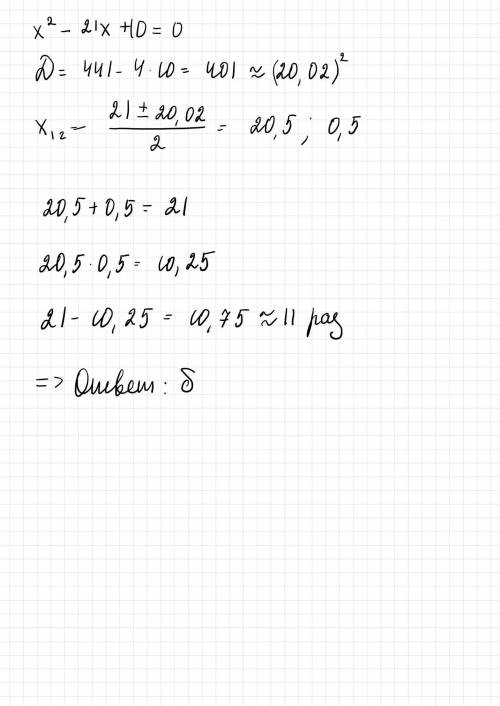 x² - 21x + 10 = 0
D = 441 - 4·10 = 401 ≈ (20,02)²
x₁₂ = (21 ± 20,02)/2 = 20,5 ; 0,5
20,5 + 0,5 = 21
20,5 · 0,5 = 10,25
21 - 10,25 = 10,75 ≈ 11 раз
=> Ответ: б